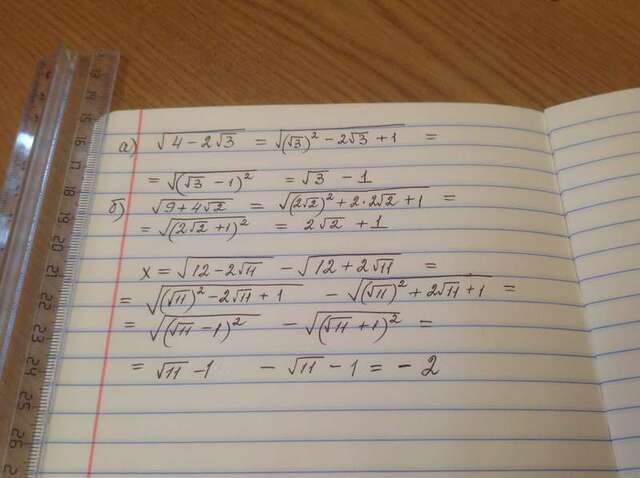 а) √4 - 2√3 = √(√3)² - 2√3 + 1 =
= √(√3 - 1)² = √3 - 1
б) √9 + 4√2 = √(2√2)² + 2·2√2 + 1 =
= √(2√2 + 1)² = 2√2 + 1
x = √12 - 2√11 - √12 + 2√11 =
= √(√11)² - 2√11 + 1 - √(√11)² + 2√11 + 1 =
= √(√11 - 1)² - √(√11 + 1)² =
= √11 - 1 - √11 - 1 = - 2
13
14
15
16
17
18
19
20
21
22
23
24
25
26